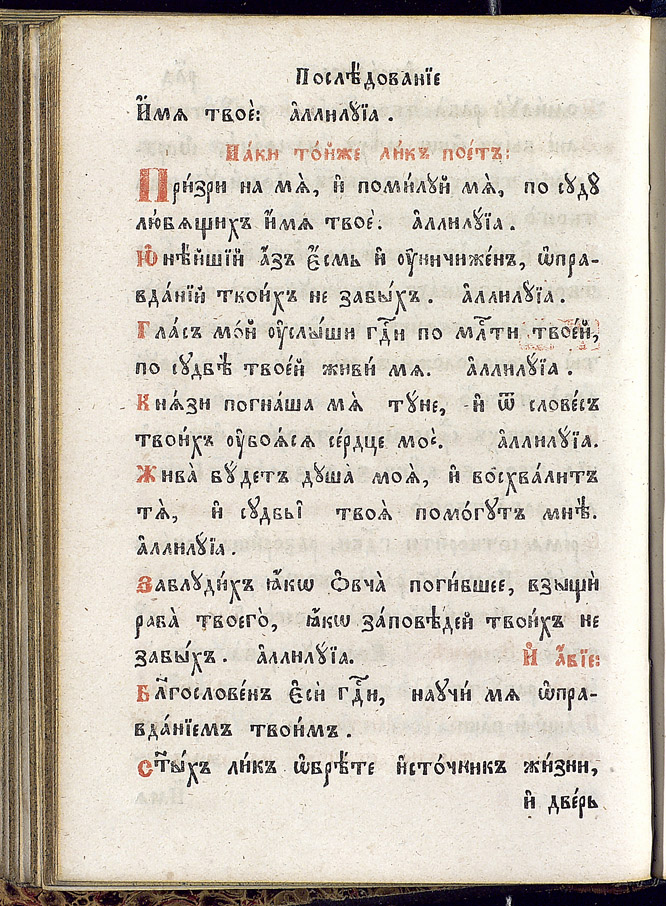 Послѣ́дованїе
И҆́мѧ твоѐ: а҆ллилꙋ́їа.
Па́ки то́йже ли́къ пое́тъ:
При́зри на мѧ̀, и҆ поми́лꙋй мѧ̀, по сꙋдꙋ̀
лю́бѧщихъ и҆́мѧ твоѐ. а҆ллилꙋ́їа.
Ю҆нѣ́йшїй а҆́зъ є҆́смь и҆ ᲂу҆ничиже́нъ, ѡ҆пра-
вда́нїй твои́хъ не забы́хъ. а҆ллилꙋ́їа.
Гла́съ мо́й ᲂу҆слы́ши гдⷭ҇и по млⷭ҇ти твое́й,
по сꙋдбѣ̀ твое́й живи́ мѧ. а҆ллилꙋ́їа.
Кнѧ́зи погна́ша мѧ̀ тꙋне, и҆ ѿ слове́съ
твои́хъ ᲂу҆боѧ́сѧ се́рдце моѐ. а҆ллилꙋ́їа.
Жива̀ бꙋ́детъ дꙋша̀ моѧ̀, и҆ восхва́литъ
тѧ̀, и҆ сꙋдьбы̀ твоѧ̀ помо́гꙋтъ мнѣ̀.
а҆ллилꙋ́їа.
Заблꙋди́хъ ꙗ҆́кѡ ѻ҆вча̀ поги́бшее, взыщѝ
раба̀ твоего̀, ꙗ҆́кѡ за́повѣдей твои́хъ не
забы́хъ. а҆ллилꙋ́їа. И҆ а҆́бїе:
Блг҃ослове́нъ є҆сѝ гдⷭ҇и, наꙋчи́ мѧ ѡ҆пра-
вда́нїемъ твои́мъ.
Ст҃ы́хъ ли́къ ѡ҆брѣ́те и҆сто́чникъ жи́зни,
и҆ две́рь